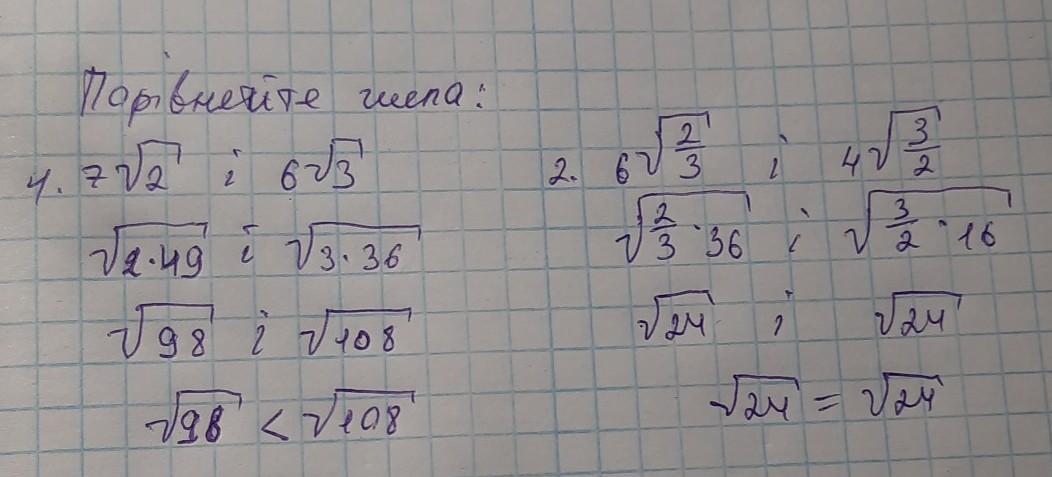 Порівняйте числа:
1. 7√2 і 6√3
√(2·49) і √(3·36)
√98 і √108
√98 < √108
2. 6√(2/3) і 4√(3/2)
√(2/3 · 36) і √(3/2 · 16)
√24 і √24
√24 = √24